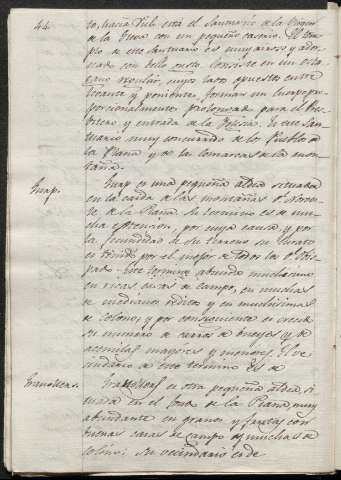 44
to, hacia Vich está el Santuario de la Virgen
de la Gleva con un pequeño caserio. El tem-
plo de este Santuario es muy aseado y ador-
nado con bello gusto. Consiste en un
regular, cuyos lados opuestos entre
levante y poniente forman un cuerpo pro-
porcionalmente prolongado para el Pres-
biterio y entrada de la Yglesia. Es este San-
tuario muy concurrido de los Pueblos de
la Plana y de las comarcas de la mon-
taña.
Gurp.
Gurp es una pequeña aldea situada
en la caida de las montañas
de la Plana. Su termino es de mu-
cha estension, por cuya causa y por
la fecundidad de su terreno su Curato
es tenido por el mejor de todos los del Obis-
pado. Este termino abunda muchisimo
en ricas casas de campo, en muchas
de medianos réditos y en muchisimas
de colonos, y por consiguiente es crecido
su numero de carros de bueyes y de
acemilas mayores y menores. El ve-
cindario de este termino es de
Granollers.
Granollers es otra pequeña aldea si-
tuada en el de la Plana, muy
abundante en granos y con
buenas casas de campo y muchas de
colonos: Su vecindario es de